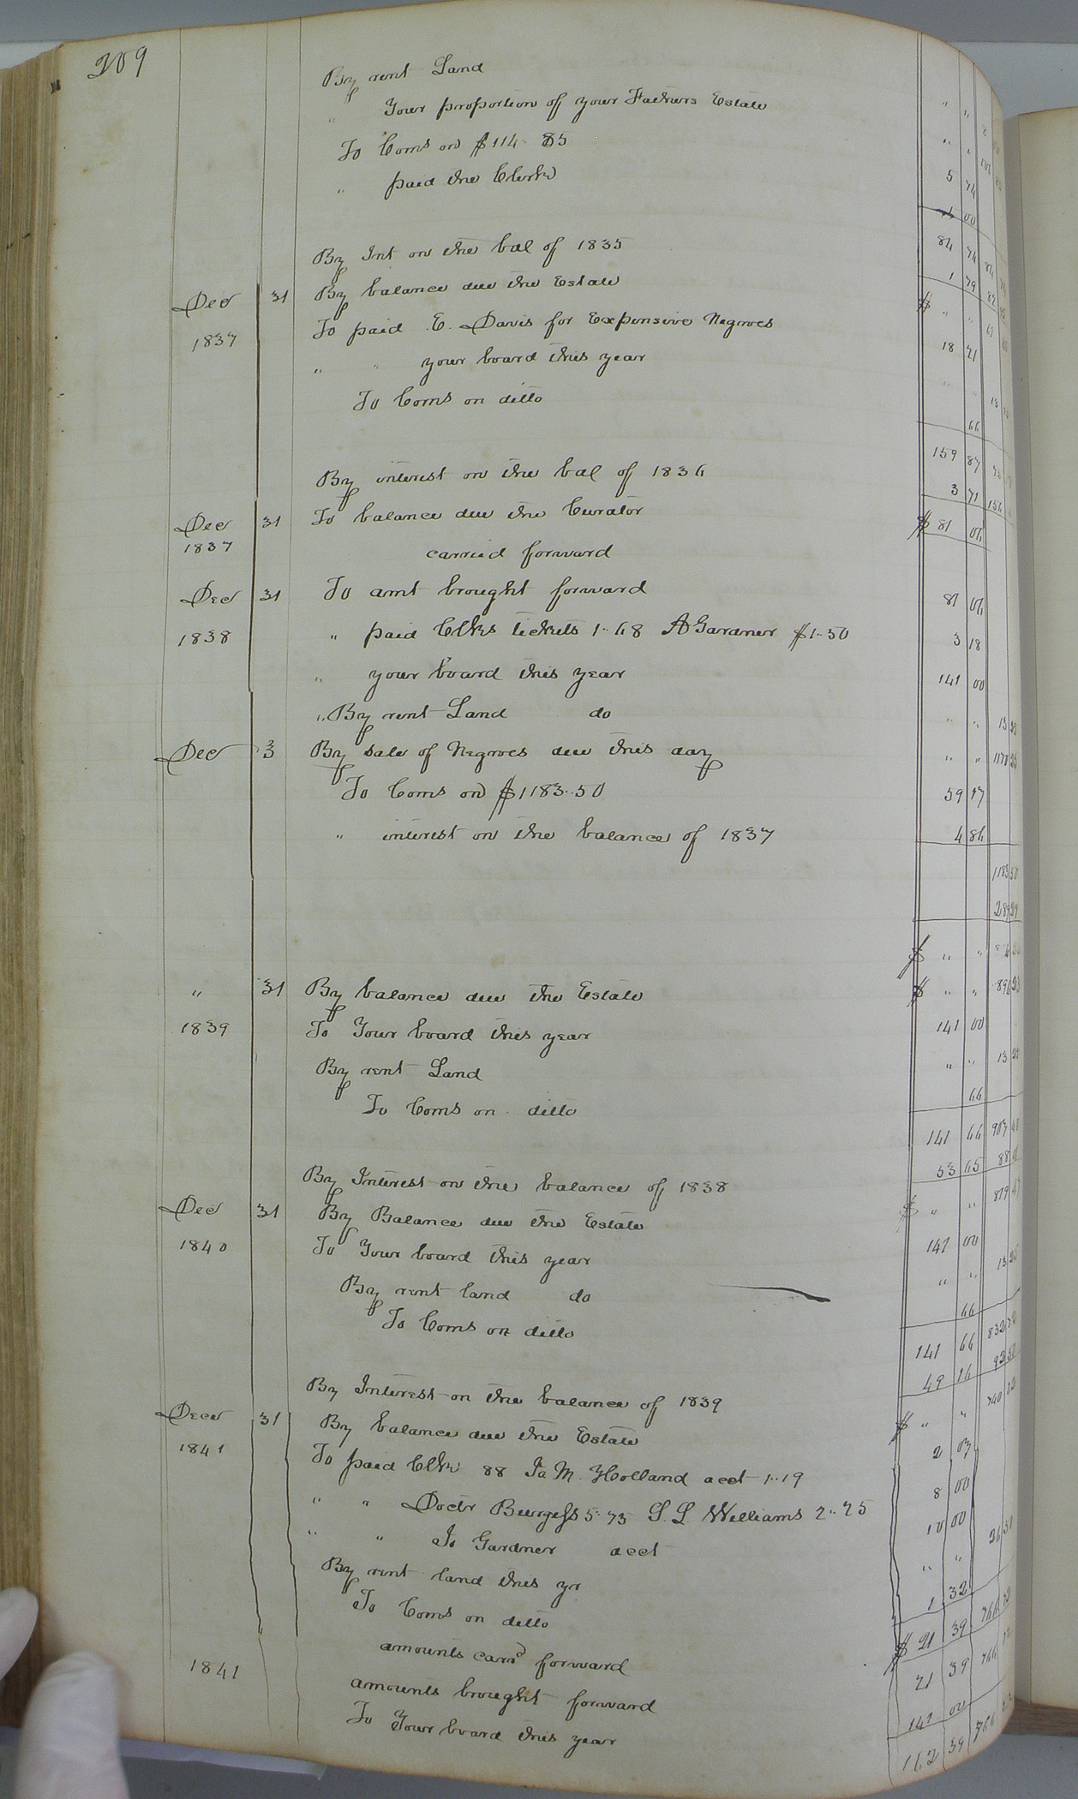 209
By rent Land
" Your proportion of your Fathers Estate " "
To Coms on $114.85 " "
" paid the Clerk 5 74
00
By Int on the bal of 1835 84 74
Decr 31 By balance due the Estate 1 79
1837 To paid E. Davis for Expensive Negroes $ " "
" " your board this year 18 21
To Coms on ditto
66
By interest on the bal of 1836 159 87
Dec 31 To balance due the Curator 3 71
1837 carried forward $ 81 06
Dec 31 To amt brought forward 81 06
1838 " paid Clks tickets 1.68 A Gardner $1.50 3 18
" your board this year 141 00
" By rent Land do " " 13
Dec 3 By sale of Negroes due this day " " 1170
To Coms on $1183.50 59 17
" interest on the balance of 1837 4 86
1183 50
289
$ " "
" 31 By balance due the Estate $ " "
1839 To Your board this year 141 00
By rent Land " " 13
To Coms on ditto 66
141 66 907
By Interest on the balance of 1838 53 65 88
Dec 31 By Balance due the Estate $ " " 819
1840 To Your board this year 141 00
By rent land do " " 13
To Coms on ditto 66
141 66 832
By Interest on the balance of 1839 49 16
Decr 31 By balance due the Estate $ " " 740
1841 To paid Clk 88 Ja M. Holland acct 1.19 2 07
" " Doctr Burgess 5.75 S. L Williams 2.25 8 00
" " Jo Gardner acct 10 00
By rent land this yr " " 26
To Coms on ditto 1 32
amounts card forward $ 21 39 766
1841 amounts brought forward 21 39 766
To Your board this year 141 00
162 39 766